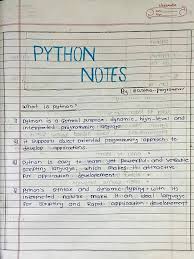 PYTHON
NOTES
What is Python?
Python is a general purpose, dynamic, high-level and
interpreted programming language
It supports object oriented programming approach to
develop applications.
Python is easy to learn yet powerful and versatile
scripting language, which makes it attractive
for application development.
Python's syntax and dynamic typing with its
interpreted nature make it an ideal language
for scripting and rapid application development